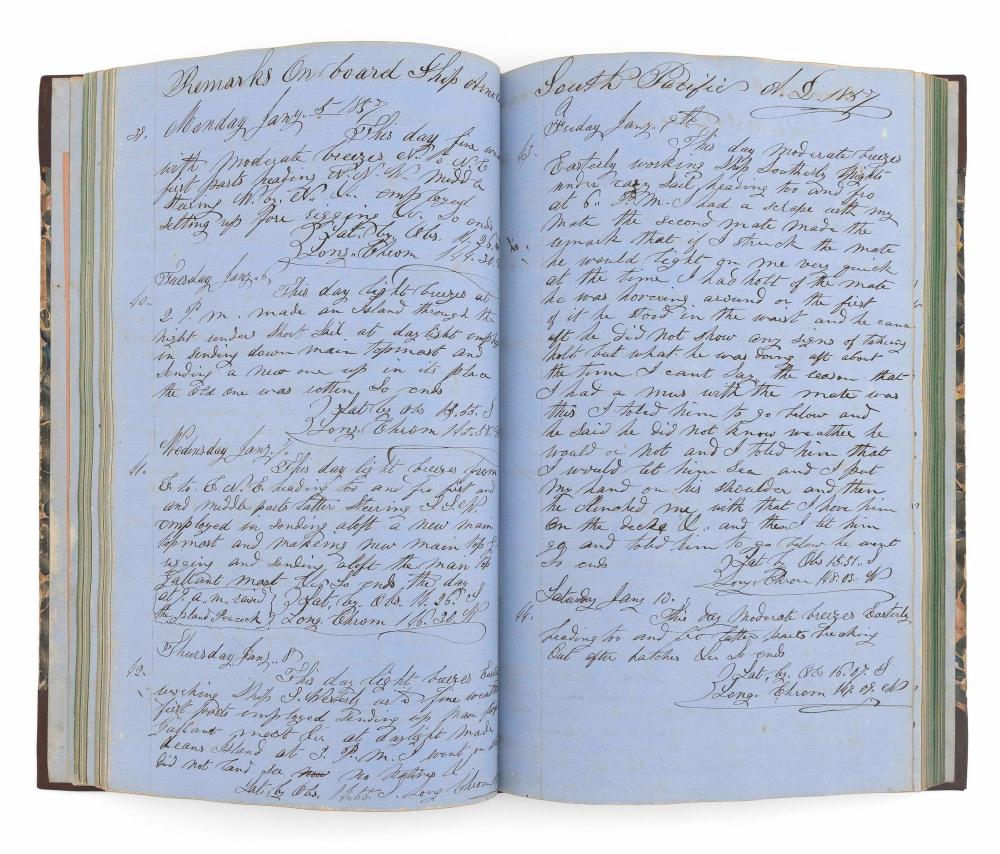 Remarks On board Ship
39. Monday Jany. 5th 1857
This day fine
with moderate breezes N. to N. E
first parts heading N. N. W. middle
stering W. by. N. &c. employed
setting up fore rigging &c. So ends
Lat. by Obs.
Long. Chrom
Tuesday Jany. 6,
40. This day light breezes at
2 P. m. made an Island through the
night under Short Sail at daylight
in sending down main topmast and
sending a new one up in its place
the old one was rotten So ends
Lat by Obs S
Long. Chrom
Wednesday Jany. 7
41. This day light breezes from
E to E. N. E. heading too and fro first and
and middle parts latter Stearing
employed in sending aloft a new main
topmast and makeing new main top
riging and sending aloft the main top
Gallant mast &c So ends the day
at 9 a. m. raised Lat. by. Obs. S
the Island Peacock Long Chrom 146.30. W
Thursday Jany. 8
42. This day light breezes
working Ship fine weather
first parts employed Sending up main top
Gallant mast &c. at daylight made
Deans Island at 3. P. M. I went on
did not land see no natives &c.
Lat. by Obs. S. Long Chrom
South Pacific A. D. 1857
Friday Jany. 9th
43. This day moderate breezes
Easterly working Ship Southerly
under easy Sail heading too and fro
at 6. P. M. I had a scrape with my
Mate the second mate made the
remark that if I struck the mate
he would light on me very quick
at the time I had holt of the mate
he was hovering around or the first
of it he stood in the waist and he came
aft he did not show any signs of takeing
holt but what he was doing aft about
the time I cant Say the reason that
I had a mus with the mate was
this I toled him to go below and
he said he did not know weather he
would or not and I told him that
I would let him See and I put
my hand on his shoulder and then
he clinched me, with that I hove him
on the deck &c. and then I let him
go and told him to go below he went
So ends Lat by Obs 15.51. S
Long. Chrom 148.03. W
Saturday Jany 10.
44. This day Moderate breezes Easterly
heading too and fro latter parts breaking
out after hatches &c So ends
Lat. by. Obs 16.07. S
Long. Chrom 148.08. W